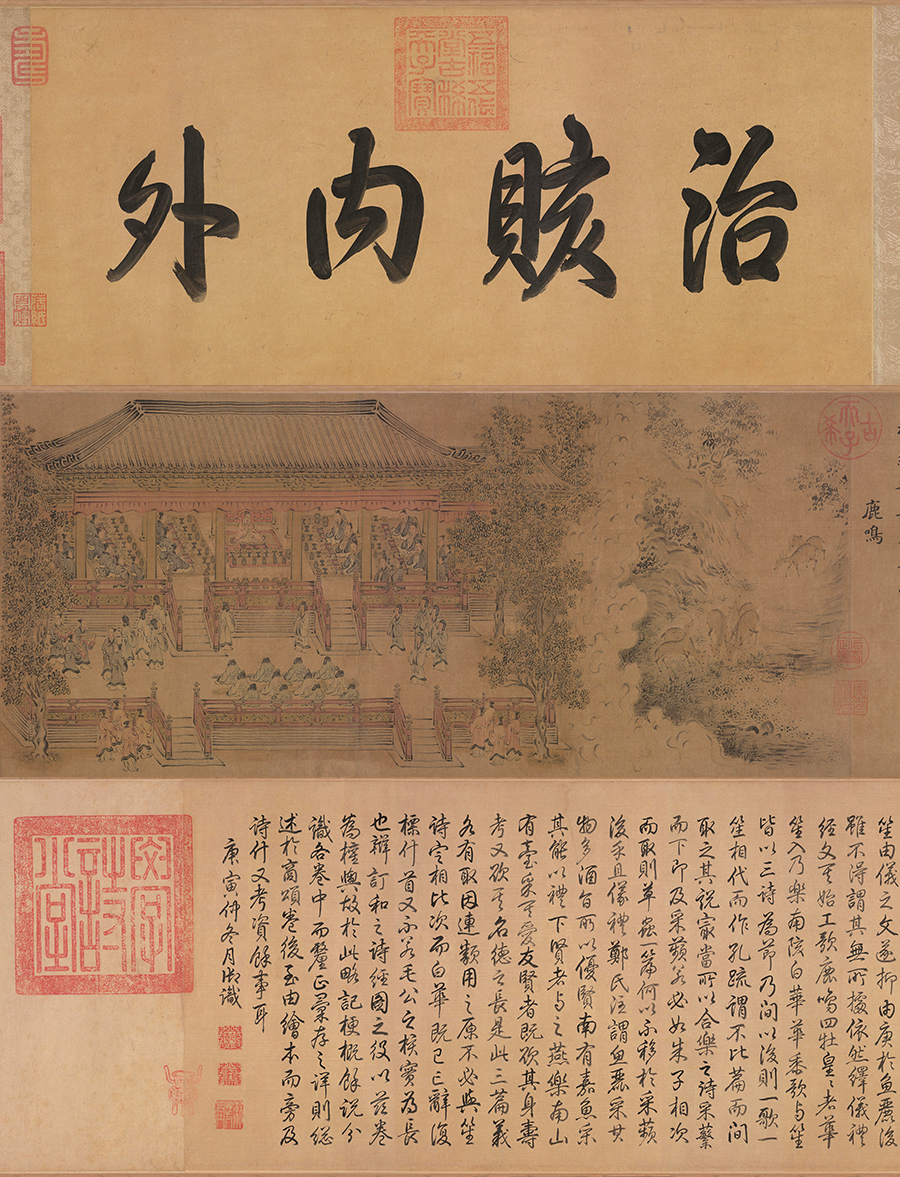 治賅內外
五福五代
堂古稀
天子寶
古希天子
鹿鳴
笙由儀之文遂抑由庚於魚麗後
雖不得謂其無所據依然繹儀禮
經文其始工歌鹿鳴四牡皇々者華
笙入乃樂南陔白華華黍歌与笙
皆以三詩為節乃間以後則一歌一
笙相代而作孔疏謂不比篇而間
取之其說寔當所以合樂之詩采蘩
而下即及采蘋若必如朱子相次
而取則草蟲一篇何以不移於采蘋
後乎且儀禮鄭氏注謂魚麗采其
物多酒旨所以優賢南有嘉魚采
其能以禮下賢者与之燕樂南山
有臺采其愛友賢者既欲其身壽
考又欲其名德之長是此三篇義
各有取因連類用之原不必與笙
詩定相比次而白華既已亡辭復
標什首又不若毛公之核實為長
也辯訂和之詩經圖之役以茲卷
為權輿故於此略記梗概餘說分
識各卷中而釐正彙存之詳則總
述於商頌卷後至由繪本而旁及
詩什又考資餘事耳
庚寅仲冬月御識